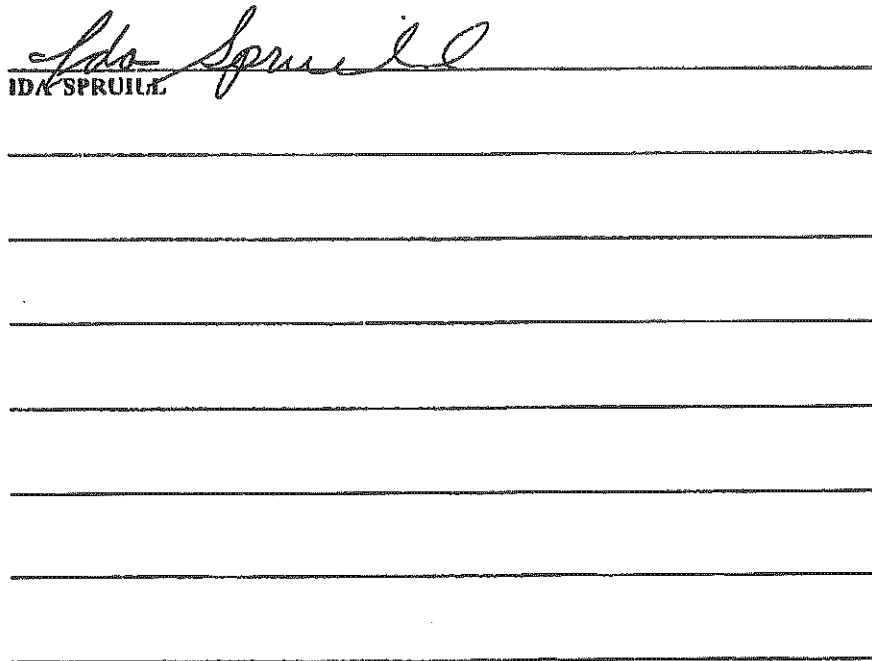 Ida Spruill
IDA SPRUILL